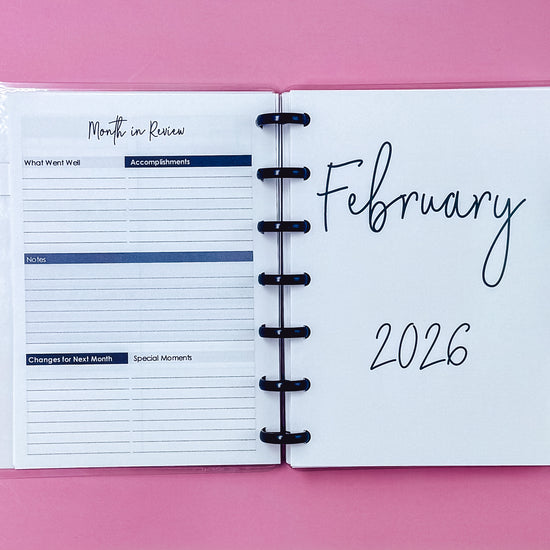 Month in Review
What Went Well
Accomplishments
Notes
Changes for Next Month
Special Moments
February
2026